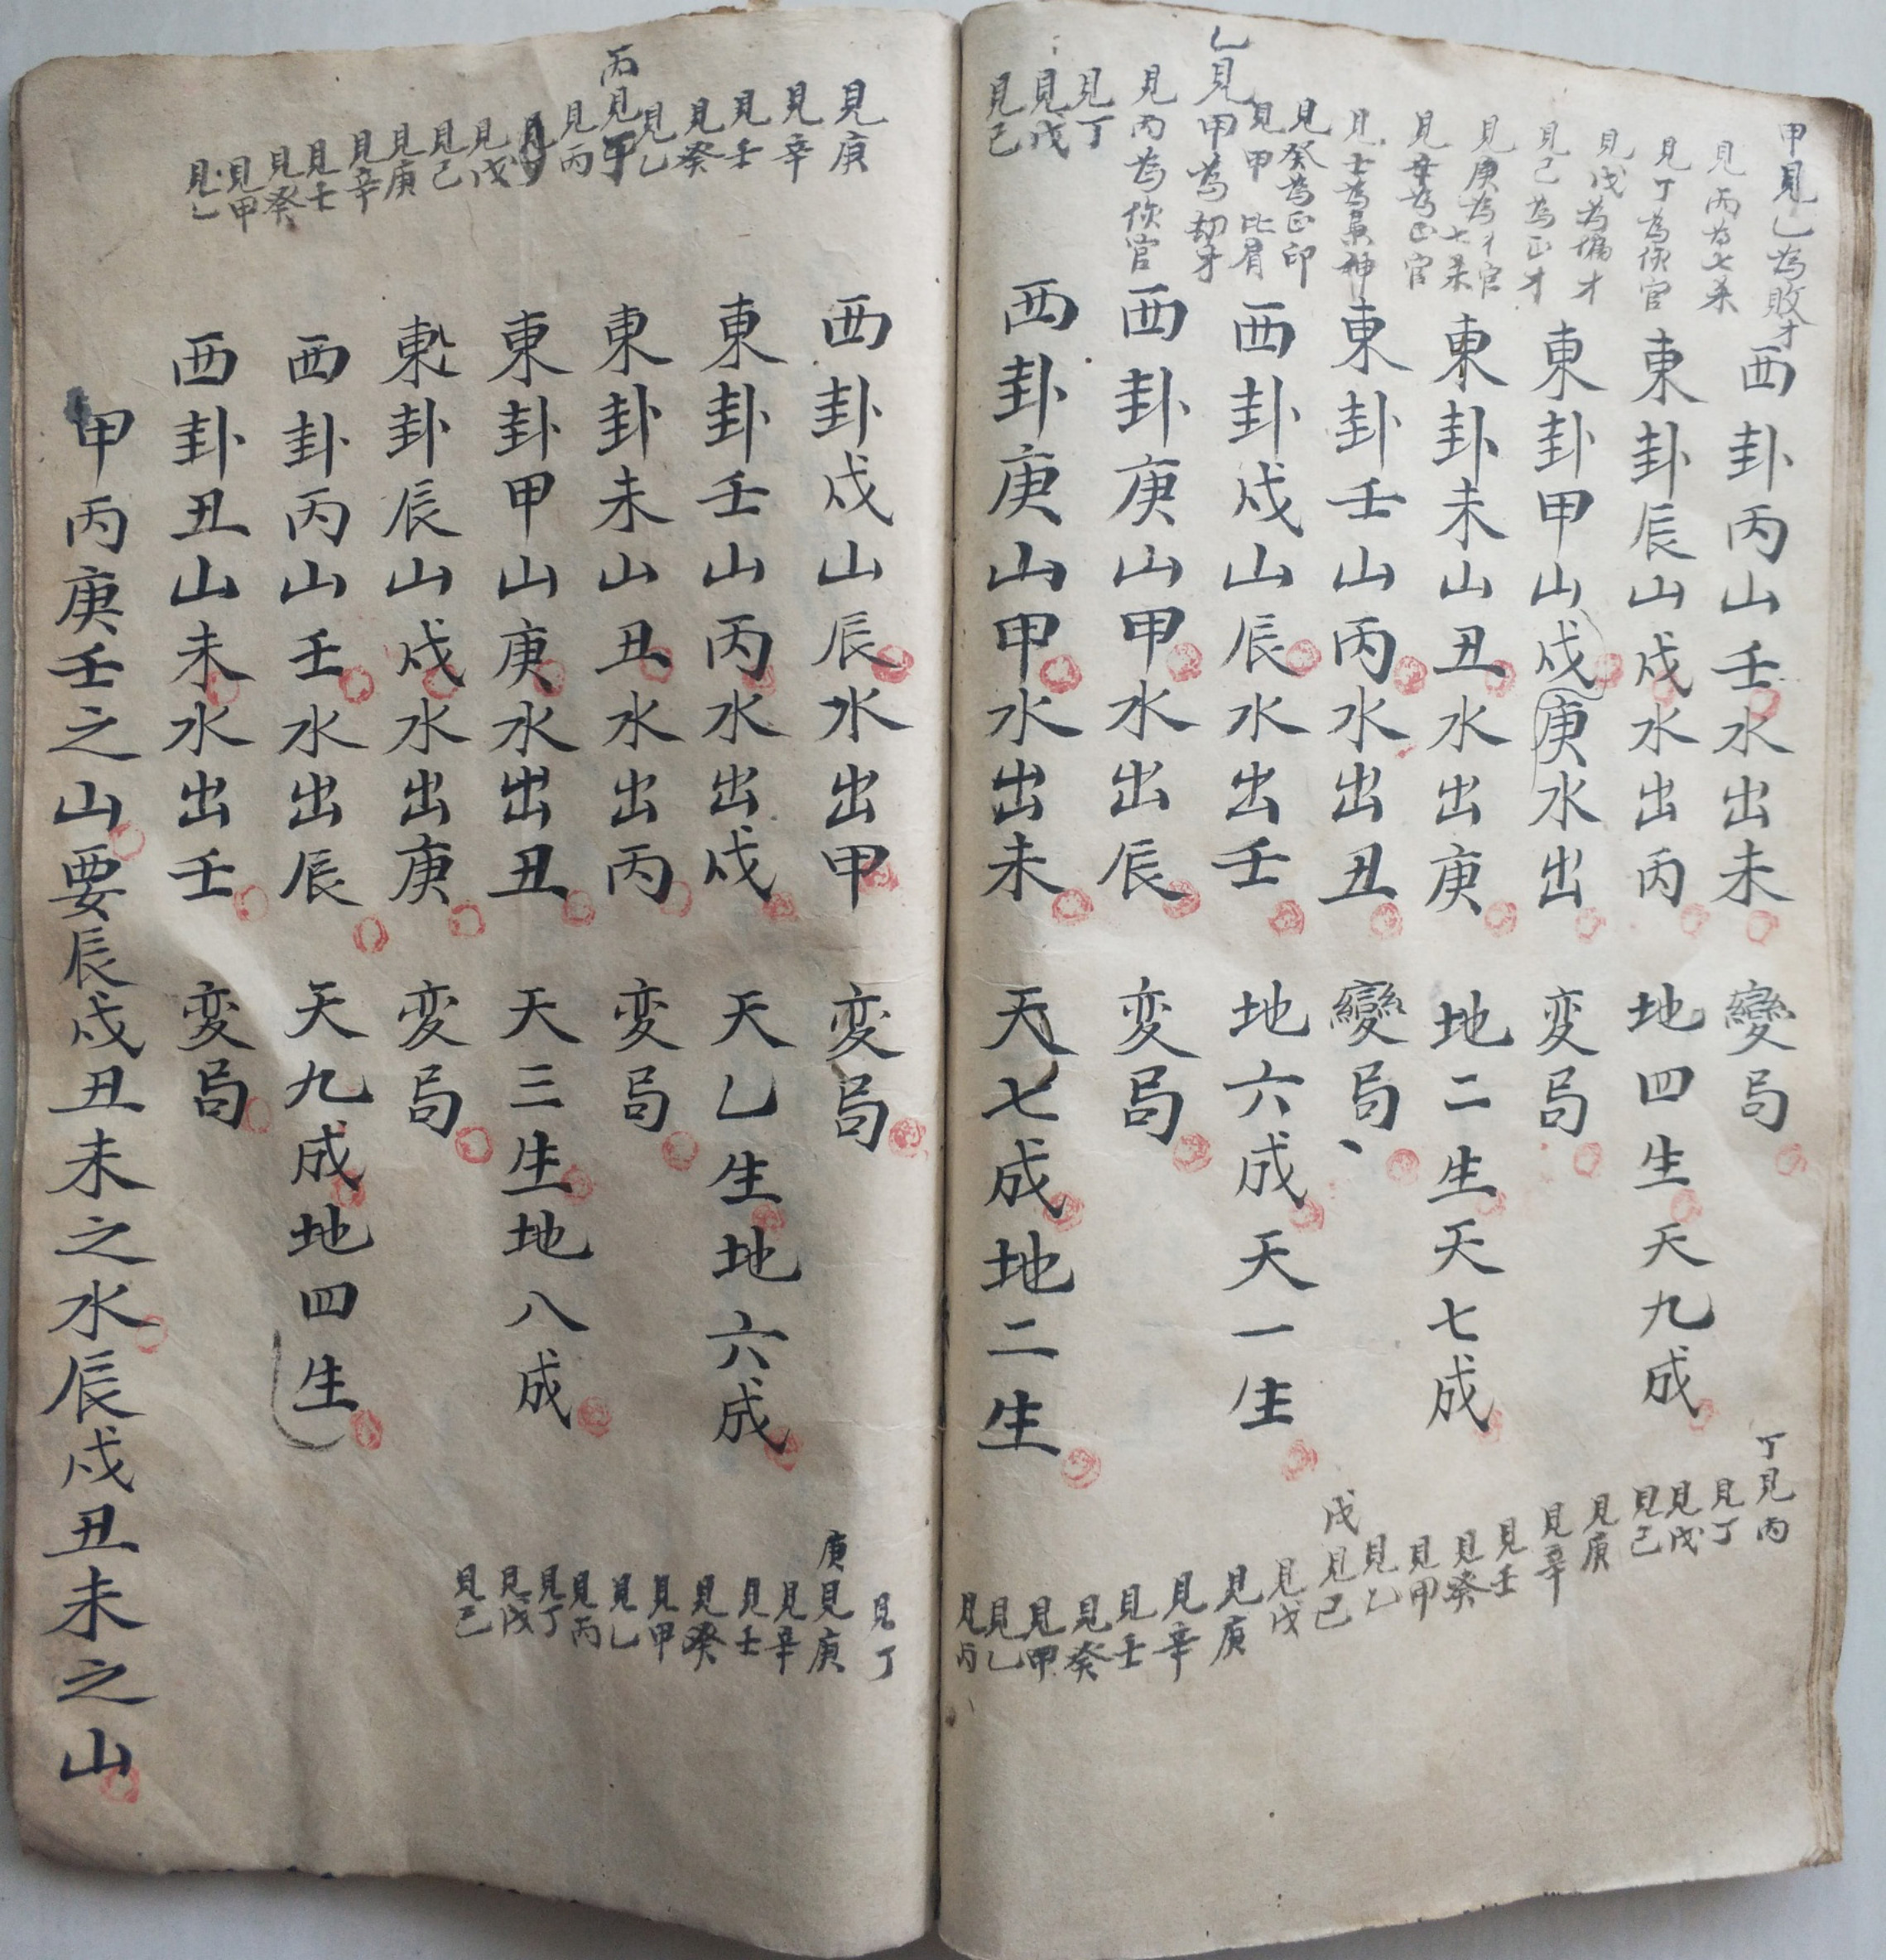 甲見乚為敗才
見丙為七杀
見丁為伤官
見戊為偏才
見己為正才
見庚為亻官
七杀
見辛為正官
見壬為梟神
見癸為正印
見甲比肩
乚見甲為劫才
見丙為伤官
見丁
見戊
見己
西卦丙山壬水出未 變局
東卦辰山戌水出丙 地四生天九成
東卦甲山戌庚水出 変局
東卦未山丑水出庚 地二生天七成
東卦壬山丙水出丑 變局、
西卦戌山辰水出壬 地六成天一生
西卦庚山甲水出辰 変局
西卦庚山甲水出未 天七成地二生
丁見丙
見丁
見戊
見己
見庚
見辛
見壬
見癸
見甲
見乚
戊見己
見戊
見庚
見辛
見壬
見癸
見甲
見乚
見丙
見庚
見辛
見壬
見癸
見乚
丙見丁
見丙
見戊
見己
見庚
見辛
見壬
見癸
見甲
見乚
西卦戌山辰水出甲 変局
東卦壬山丙水出戌 天乚生地六成
東卦未山丑水出丙 変局
東卦甲山庚水出丑 天三生地八成
東卦辰山戌水出庚 変局
西卦丙山壬水出辰 天九成地四生
西卦丑山未水出壬 変局
甲丙庚壬之山要辰戌丑未之水辰戌丑未之山
見丁
庚見庚
見辛
見壬
見癸
見甲
見乚
見丙
見丁
見戊
見己